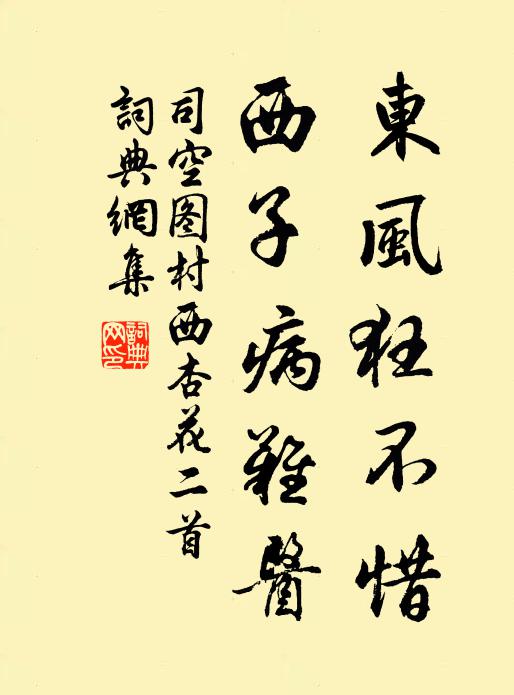 東風狂不惜
西子病難醫
司空图村西杏花二首
詞典網集
詞典網印